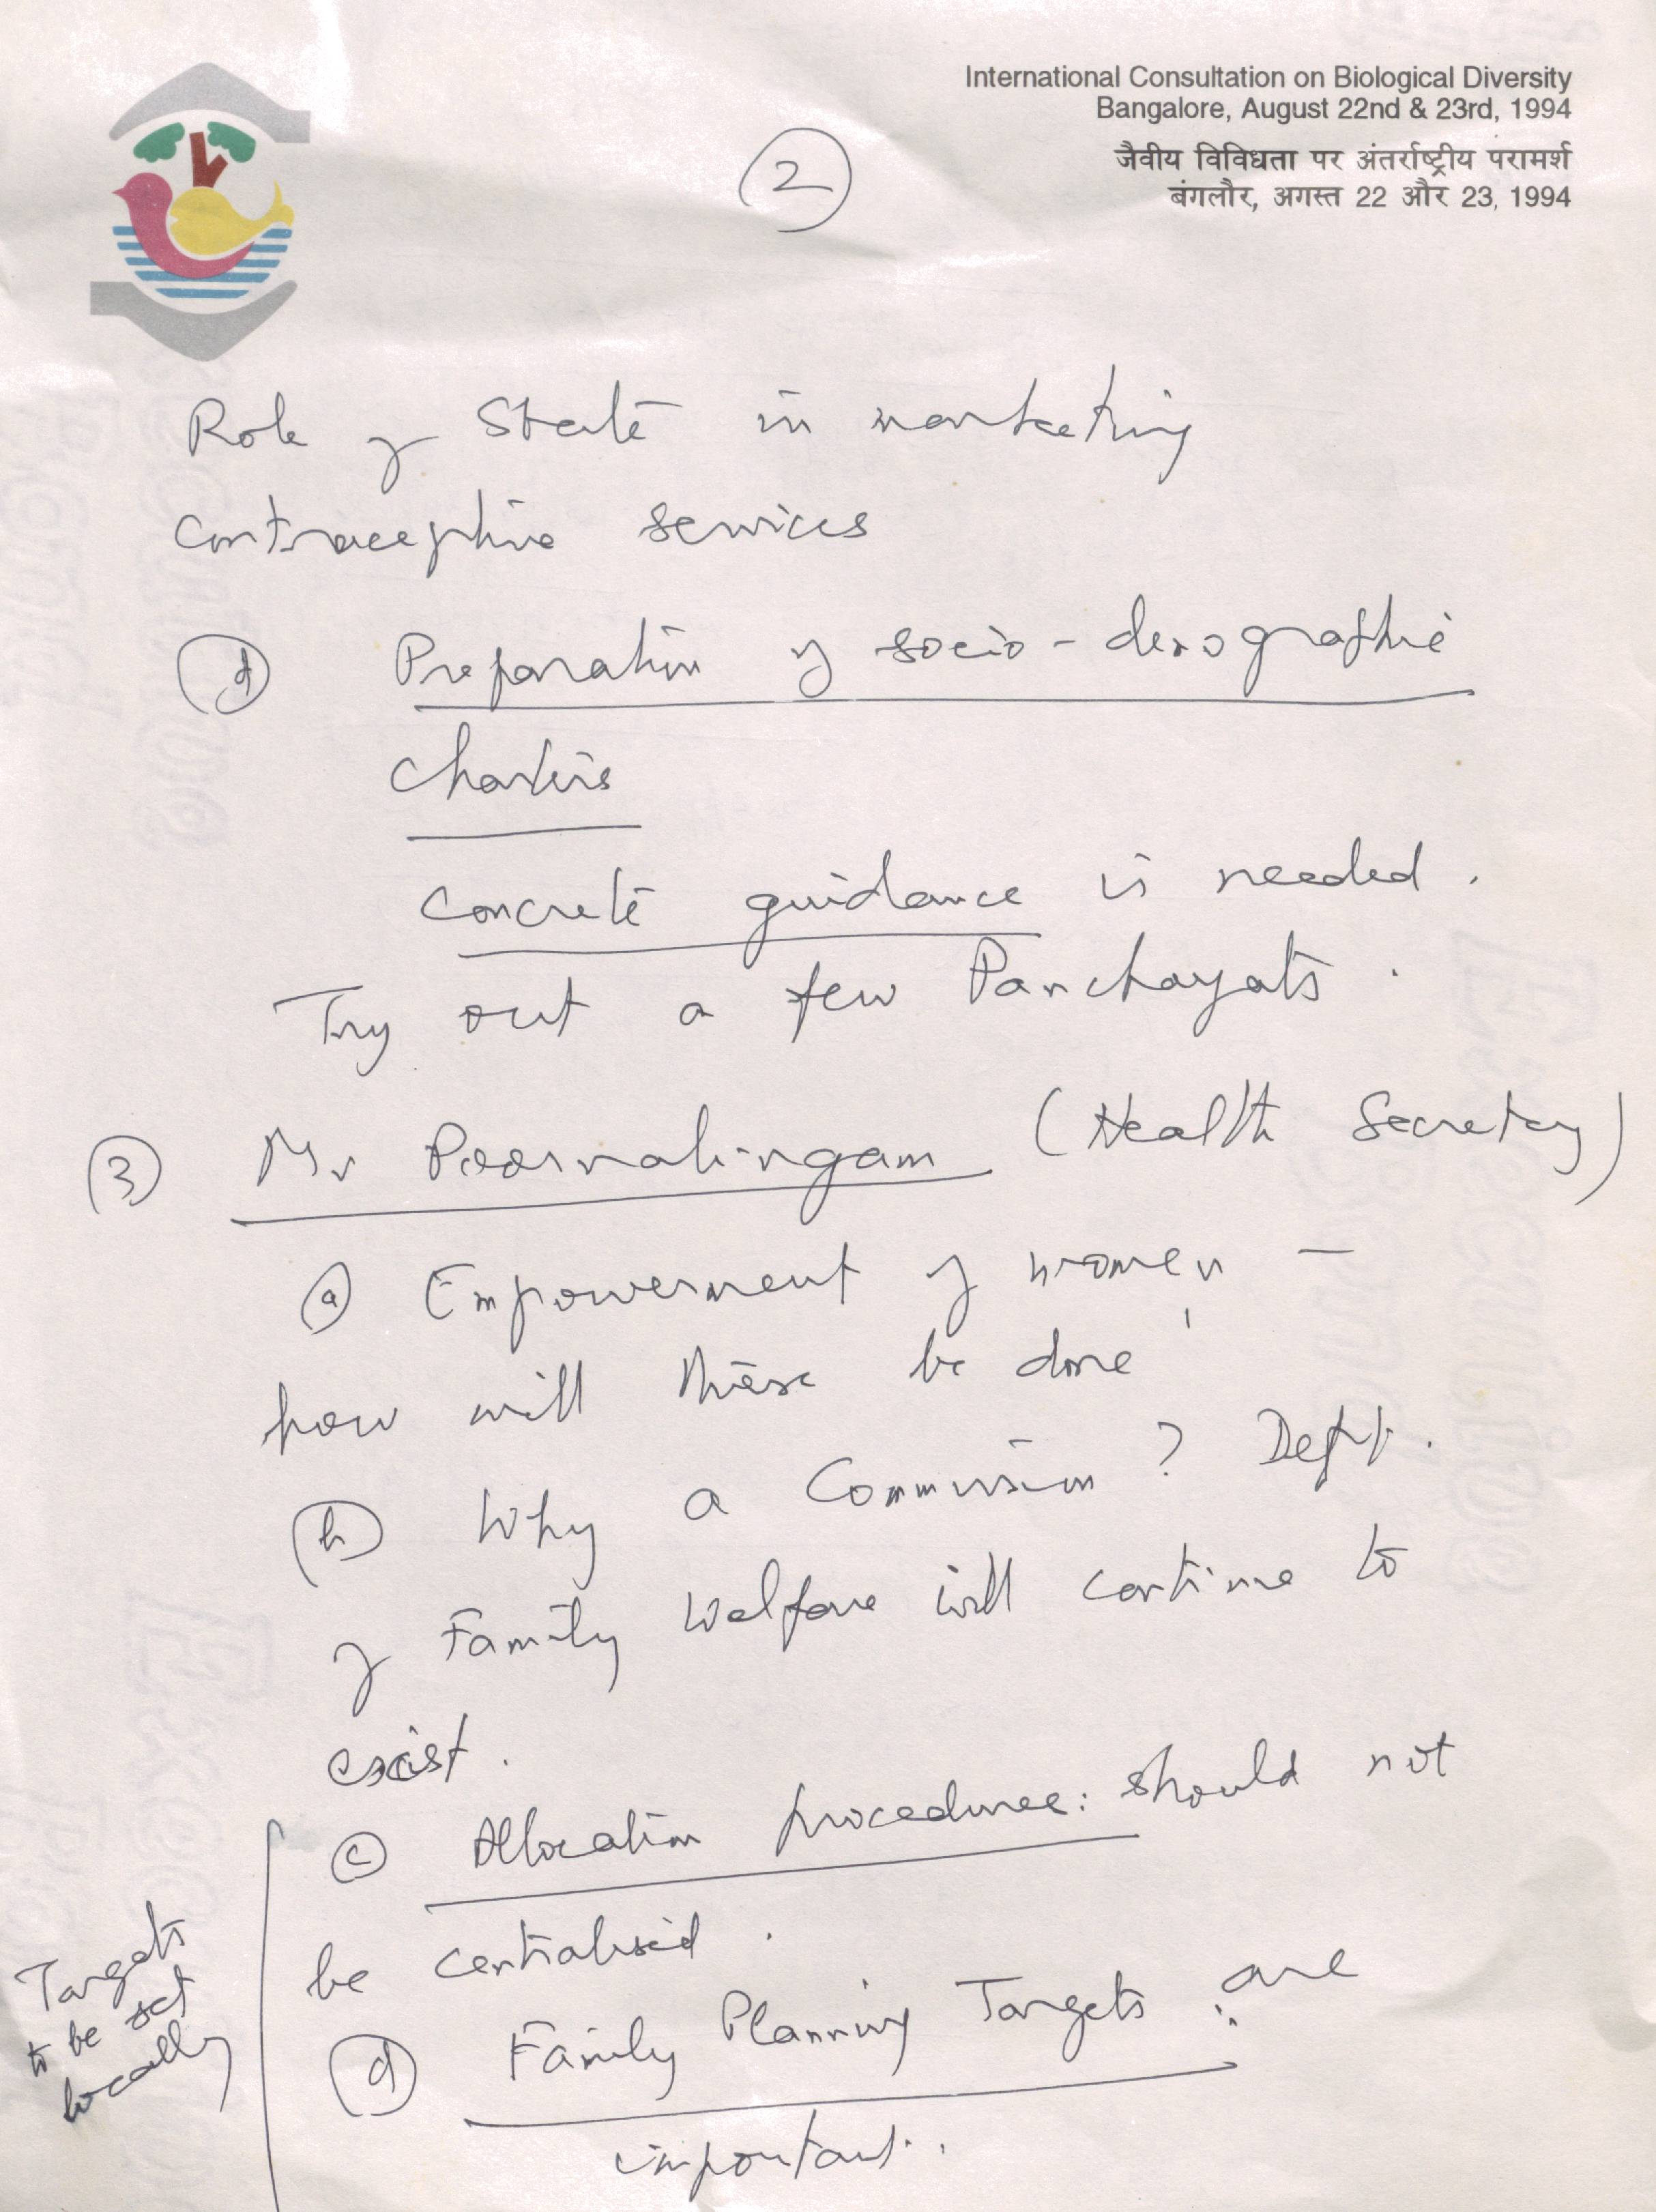 International Consultation on Biological Diversity
Bangalore, August 22nd & 23rd, 1994
जैवीय विविधता पर अंतर्राष्ट्रीय परामर्श
बंगलौर, अगस्त 22 और 23, 1994
2
Role of State in marketing
contraceptive services
(d) Preparation of socio-demographic
charters
concrete guidance is needed.
Try out a few Panchayats.
(3) Mr Poornalingam (Health Secretary)
(a) Empowerment of women —
how will these be done
(b) Why a Commission? Dept.
of Family Welfare will continue to
exist.
(c) Allocation procedures: should not
be centralised.
(d) Family Planning Targets: are
important.
Targets
to be set
locally